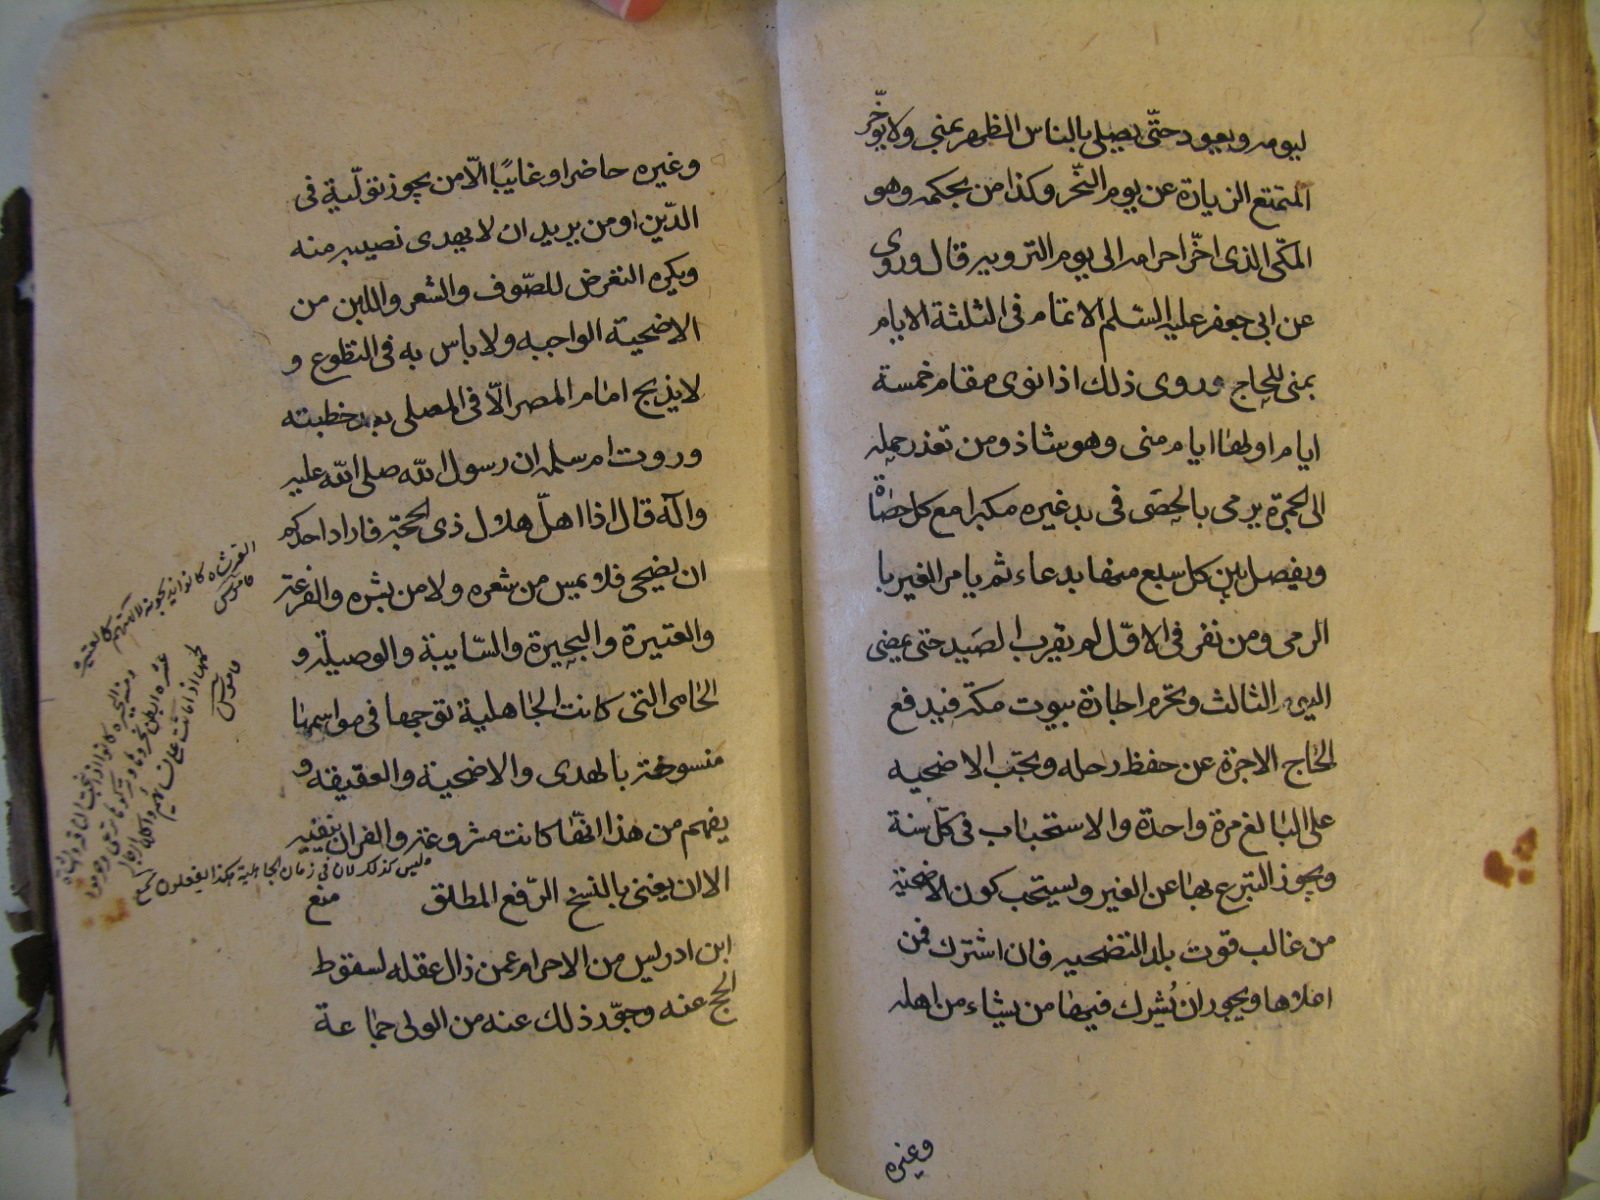 ليومه ويعود حتّى يصلي بالناس الظهر بمنى ولا يؤخّر
المتمتع الزيارة عن يوم النّحر وكذا من بحكمه وهو
المكّى الذى اخّر احرامه الى يوم الترويه قال وروى
عن ابى جعفر عليه السّلم الاتمام فى الثلثة الايام
بمنى للحاج وروى ذلك اذا نوى مقام خمسة
ايام اولها ايام منى وهو شاذ ومن تعذر حمله
الى الجمرة يرمى بالحصَى فى يد غيره مكبرا مع كل حصاة
ويفصل بين كل سبع منها بدعاء ثم يامر الغير با
الرمى ومن نفر فى الاوّل لم يقرب الصَيد حتى يمضى
اليوم الثالث وتحرم اجارة بيوت مكة فيدفع
الحاج الاجرة عن حفظ رحله وتجب الاضحيه
على البالغ مرة واحدة والاستحباب فى كلّ سنة
ويجوز التبرع بها عن الغير ويستحب كون الاضحية
من غالب قوت بلد التضحيه فان اشترك فمن
اعلاها ويجوز ان يُشرك فيها من يشاء من اهله
وغيره
وغيره حاضرا او غايبًا الّا من يجوز تولّية فى
الدّين او من يريد ان لا يهدى نصيبه منه
ويكره التعرض للصّوف والشعر واللبن من
الاضحيّة الواجبه ولا باس به فى التطوع و
لا يذبح امام المصر الّا فى المصلى بعد خطبته
وروت ام سلمه ان رسول اللّه صلى اللّه عليه
وآله قال اذا اهلّ هلال ذى الحجّة فاراد احدكم
ان يضحى فلا يمس من شعره ولا من بشره والفرعة
والعتيرة والبحيرة والسّايبة والوصيلة و
الحامى التى كانت الجاهلية توجبها فى مواسمها
منسوخة بالهدى والاضحية والعقيقه و
يفهم من هذا انّها كانت مشروعة والقران ينفيه
وليس كذلك لان فى زمان الجاهلية هكذا يفعلون
الا ان يعنى بالنسخ الرّفع المطلق منع
ابن ادريس من الاحرام عمن زال عقله لسقوط
الحج عنه وجوّز ذلك عنه من الولى جماعة
كانوا يذبحونه لآلهتهم كالعتيرة
قاموس
قاموس